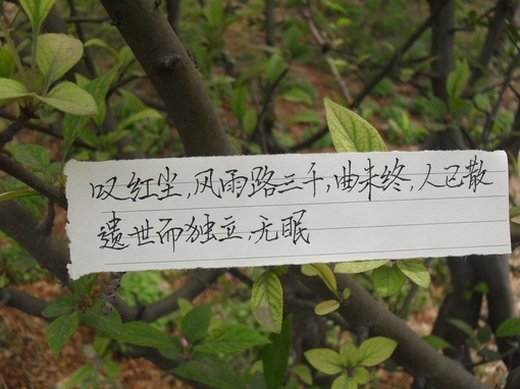 叹红尘,风雨路三千,曲未终,人已散
遗世而独立,无眠